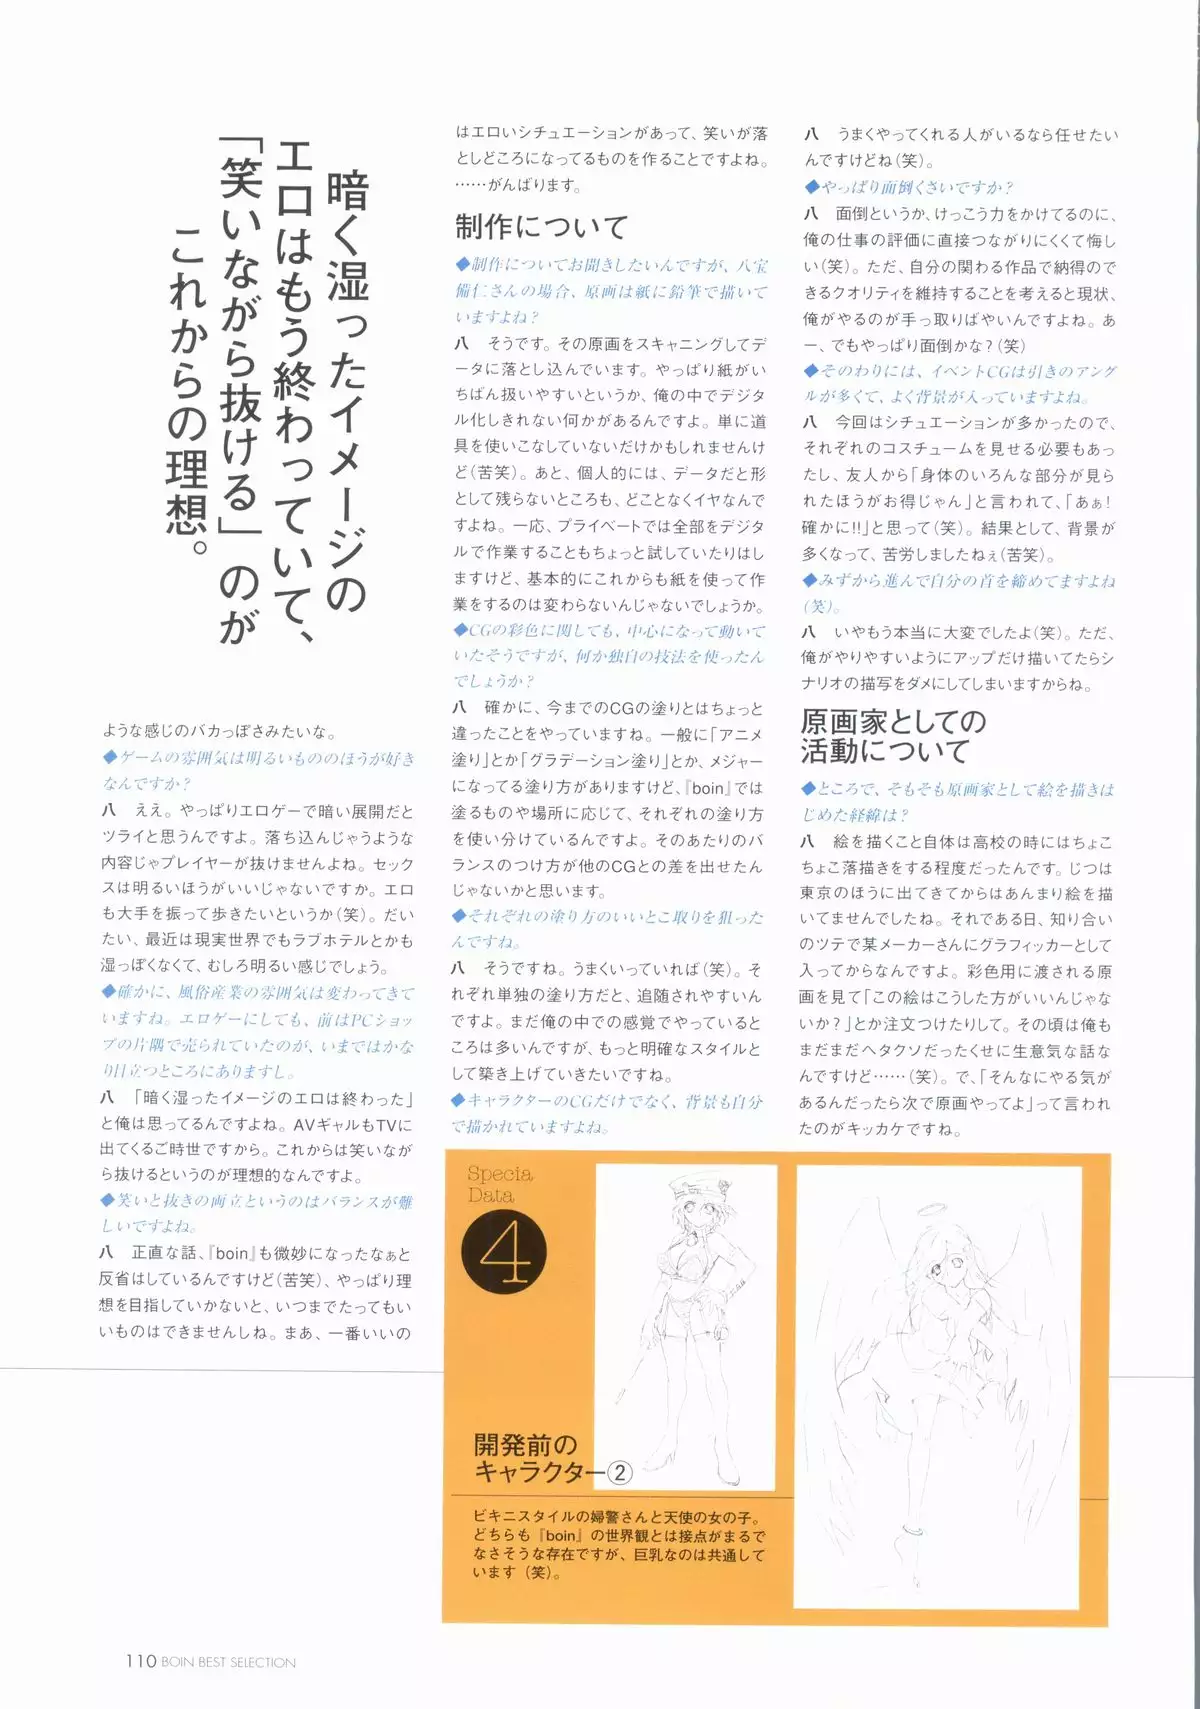 暗く湿ったイメージの
エロはもう終わっていて、
「笑いながら抜ける」のが
これからの理想。
ような感じのバカっぽさみたいな。
◆ゲームの雰囲気は明るいもののほうが好き
なんですか?
八　ええ。やっぱりエロゲーで暗い展開だと
ツライと思うんですよ。落ち込んじゃうような
内容じゃプレイヤーが抜けませんよね。セック
スは明るいほうがいいじゃないですか。エロ
も大手を振って歩きたいというか（笑）。だい
たい、最近は現実世界でもラブホテルとかも
湿っぽくなくて、むしろ明るい感じでしょう。
◆確かに、風俗産業の雰囲気は変わってきて
いますね。エロゲーにしても、前はPCショッ
プの片隅で売られていたのが、いまではかな
り目立つところにありますし。
八　「暗く湿ったイメージのエロは終わった」
と俺は思ってるんですよね。AVギャルもTVに
出てくるご時世ですから。これからは笑いなが
ら抜けるというのが理想的なんですよ。
◆笑いと抜きの両立というのはバランスが難
しいですよね。
八　正直な話、『boin』も微妙になったなぁと
反省はしているんですけど（苦笑）、やっぱり理
想を目指していかないと、いつまでたってもい
いものはできませんしね。まあ、一番いいの
はエロいシチュエーションがあって、笑いが落
としどころになってるものを作ることですよね。
……がんばります。
制作について
◆制作についてお聞きしたいんですが、八宝
備仁さんの場合、原画は紙に鉛筆で描いて
いますよね?
八　そうです。その原画をスキャニングしてデ
ータに落とし込んでいます。やっぱり紙がい
ちばん扱いやすいというか、俺の中でデジタ
ル化しきれない何かがあるんですよ。単に道
具を使いこなしていないだけかもしれませんけ
ど（苦笑）。あと、個人的には、データだと形
として残らないところも、どことなくイヤなんで
すよね。一応、プライベートでは全部をデジタ
ルで作業することもちょっと試していたりはし
ますけど、基本的にこれからも紙を使って作
業をするのは変わらないんじゃないでしょうか。
◆CGの彩色に関しても、中心になって動いて
いたそうですが、何か独自の技法を使ったん
でしょうか?
八　確かに、今までのCGの塗りとはちょっと
違ったことをやっていますね。一般に「アニメ
塗り」とか「グラデーション塗り」とか、メジャー
になってる塗り方がありますけど、『boin』では
塗るものや場所に応じて、それぞれの塗り方
を使い分けているんですよ。そのあたりのバ
ランスのつけ方が他のCGとの差を出せたん
じゃないかと思います。
◆それぞれの塗り方のいいとこ取りを狙った
んですね。
八　そうですね。うまくいっていれば（笑）。そ
れぞれ単独の塗り方だと、追随されやすいん
ですよ。まだ俺の中での感覚でやっていると
ころは多いんですが、もっと明確なスタイルと
して築き上げていきたいですね。
◆キャラクターのCGだけでなく、背景も自分
で描かれていますよね。
八　うまくやってくれる人がいるなら任せたい
んですけどね（笑）。
◆やっぱり面倒くさいですか?
八　面倒というか、けっこう力をかけてるのに、
俺の仕事の評価に直接つながりにくくて悔し
い（笑）。ただ、自分の関わる作品で納得ので
きるクオリティを維持することを考えると現状、
俺がやるのが手っ取りばやいんですよね。あ
ー、でもやっぱり面倒かな?（笑）
◆そのわりには、イベントCGは引きのアング
ルが多くて、よく背景が入っていますよね。
八　今回はシチュエーションが多かったので、
それぞれのコスチュームを見せる必要もあっ
たし、友人から「身体のいろんな部分が見ら
れたほうがお得じゃん」と言われて、「あぁ!
確かに!!」と思って（笑）。結果として、背景が
多くなって、苦労しましたねぇ（苦笑）。
◆みずから進んで自分の首を締めてますよね
（笑）。
八　いやもう本当に大変でしたよ（笑）。ただ、
俺がやりやすいようにアップだけ描いてたらシ
ナリオの描写をダメにしてしまいますからね。
原画家としての
活動について
◆ところで、そもそも原画家として絵を描きは
じめた経緯は?
八　絵を描くこと自体は高校の時にはちょこ
ちょこ落描きをする程度だったんです。じつは
東京のほうに出てきてからはあんまり絵を描
いてませんでしたね。それである日、知り合い
のツテで某メーカーさんにグラフィッカーとして
入ってからなんですよ。彩色用に渡される原
画を見て「この絵はこうした方がいいんじゃな
いか?」とか注文つけたりして。その頃は俺も
まだまだヘタクソだったくせに生意気な話な
んですけど……（笑）。で、「そんなにやる気が
あるんだったら次で原画やってよ」って言われ
たのがキッカケですね。
Specia
Data
4
開発前の
キャラクター②
ビキニスタイルの婦警さんと天使の女の子。
どちらも『boin』の世界観とは接点がまるで
なさそうな存在ですが、巨乳なのは共通して
います（笑）。
110 BOIN BEST SELECTION